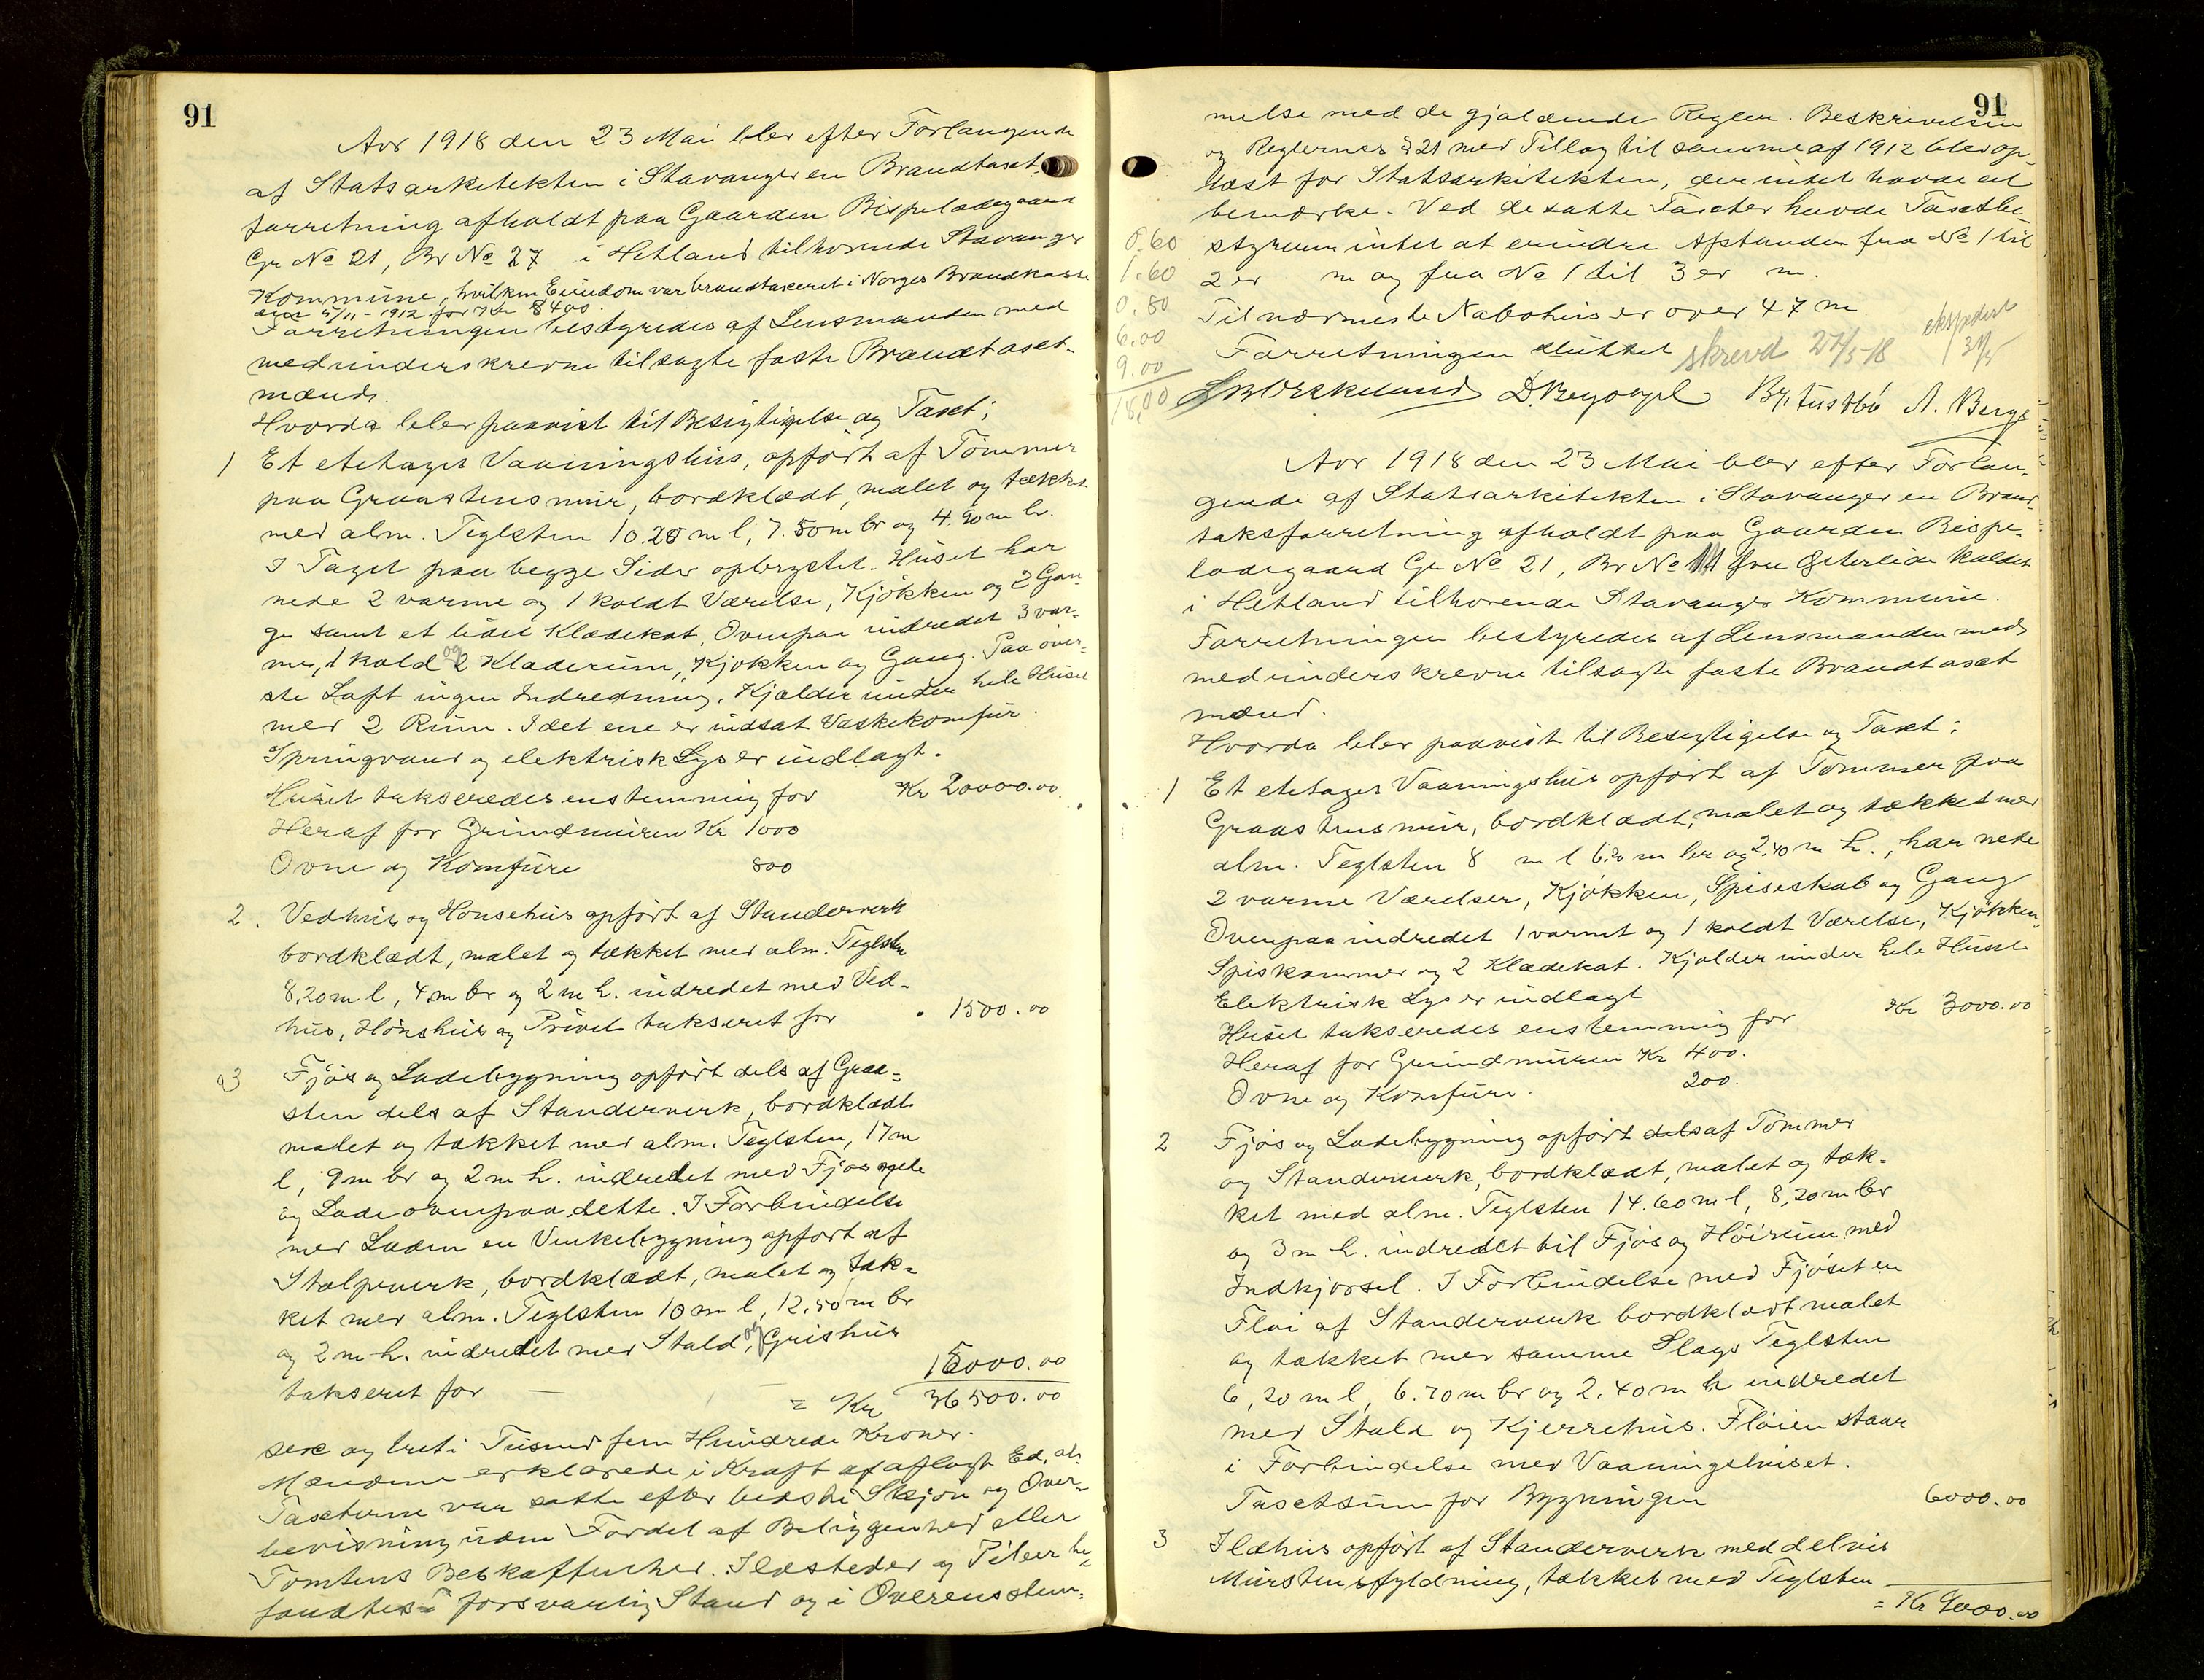 91
Aar 1918 den 23 Mai blev efter Forlangende
af Statsarkitekten i Stavanger en Brandtaxt-
forretning afholdt paa Gaarden Bispeladegaard
Gr No 21, Br No 27 i Hetland tilhørende Stavanger
Kommune, hvilken Eiendom var brandtaxeret i Norges Brandkasse
den 5/11-1912 for Kr 8400.
Forretningen bestyredes af Lensmanden med
medunderskrevne tilsagte faste Brandtaxt-
mænd.
Hvorda blev paavist til Besigtigelse og Taxt;
1 Et etetages Vaaningshus, opført af Tømmer
paa Graastensmur, bordklædt, malet og tækket
med alm. Teglsten 10.25 m l, 7.50 m br og 4.90 m h.
I Taget paa begge Sider opbrystet. Huset har
nede 2 varme og 1 koldt Værelse, Kjøkken og 2 Gan-
ge samt et lidet Klædekot. Ovenpaa indredet 3 var-
me, 1 kold og 2 Klæderum, Kjøkken og Gang. Paa øver-
ste Loft ingen Indredning. Kjælder under hele Huset
med 2 Rum. I det ene er indsat Vaskekomfur.
Springvand og elektrisk Lys er indlagt.
Huset takseredes enstemmig for Kr 20000.00
Heraf for Grundmuren Kr 1000
Ovne og Komfure 800
2. Vedhus og Hønsehus opført af Standerverk
bordklædt, malet og tækket med alm. Teglsten
8,20 m l, 4 m br og 2 m h. indredet med Ved-
hus, Hønshus og Privet takseret for " 1500.00
3 Fjøs og Ladebygning opført dels af Graa-
sten dels af Standerverk, bordklædt
malet og tækket med alm. Teglsten, 17 m
l, 9 m br og 2 m h. indredet med Fjøs nede
og Lade ovenpaa dette. I Forbindelse
med Laden en Vinkelbygning opført af
Stolpeverk, bordklædt, malet og tæk-
ket med alm. Teglsten 10 m l, 12,50 m br
og 2 m h. indredet med Stald, og Grishus
takseret for — — 15000.00
= Kr 36500.00
sex og treti Tusend fem Hundrede Kroner.
Mændene erklærede i Kraft af aflagt Ed, at
Taxterne var satte efter bedste Skjøn og Over-
bevisning uden Fordel af Beliggenhed eller
Tomtens Beskaffenhed. Ildsteder og Piber be-
fandtes i forsvarlig Stand og i Overensstem-
91
melse med de gjældende Regler. Beskrivelsen
og Reglernes § 21 med Tillæg til samme af 1912 blev op-
læst for Statsarkitekten, der intet havde at
bemærke. Ved de satte Taxter havde Taxtbe-
styreren intet at erindre Afstanden fra No 1 til
2 er m og fra No 1 til 3 er m.
Til nærmeste Nabohus er over 47 m
Forretningen sluttet skrevd 27/5-18 ekspedert 31/5
0.60
1.60
0.80
6.00
9.00
18,00
A. Berge
Aar 1918 den 23 Mai blev efter Forlan-
gende af Statsarkitekten i Stavanger en Brand-
taksforretning afholdt paa Gaarden Bispe-
ladegaard Gr No 21, Br No 11 øvre Østerlide kaldet
i Hetland tilhørende Stavanger Kommune.
Forretningen bestyredes af Lensmanden med
medunderskrevne tilsagte faste Brandtaxt
mænd.
Hvorda blev paavist til Besigtigelse og Taxt;
1 Et etetages Vaaningshus opført af Tømmer paa
Graastensmur, bordklædt, malet og tækket med
alm. Teglsten 8 m l 6,20 m br og 2,40 m h., har nede
2 varme Værelser, Kjøkken, Spiseskab og Gang
Ovenpaa indredet 1 varmt og 1 koldt Værelse, Kjøkken,
Spiskammer og 2 Klædekot. Kjælder under hele Huset
Elektrisk Lys er indlagt
Huset takseredes enstemmig for Kr 3000.00
Heraf for Grundmuren Kr 400.
Ovne og Komfure. 200.
2 Fjøs og Ladebygning opført dels af Tømmer
og Standerverk, bordklædt, malet og tæk-
ket med alm. Teglsten 14.60 m l, 8,20 m br
og 3 m h. indredet til Fjøs og Høirum med
Indkjørsel. I Forbindelse med Fjøset en
Fløi af Standerverk bordklædt malet
og tækket med samme Slags Teglsten
6,20 m l, 6.70 m br og 2.40 m h indredet
med Stald og Kjerrehus. Fløien staar
i Forbindelse med Vaaningshuset.
Taxtsum for Bygningen 6000.00
3 Ildhus opført af Standerverk med delvis
Murstensfyldning, tækket med Teglsten
= Kr 9000.00